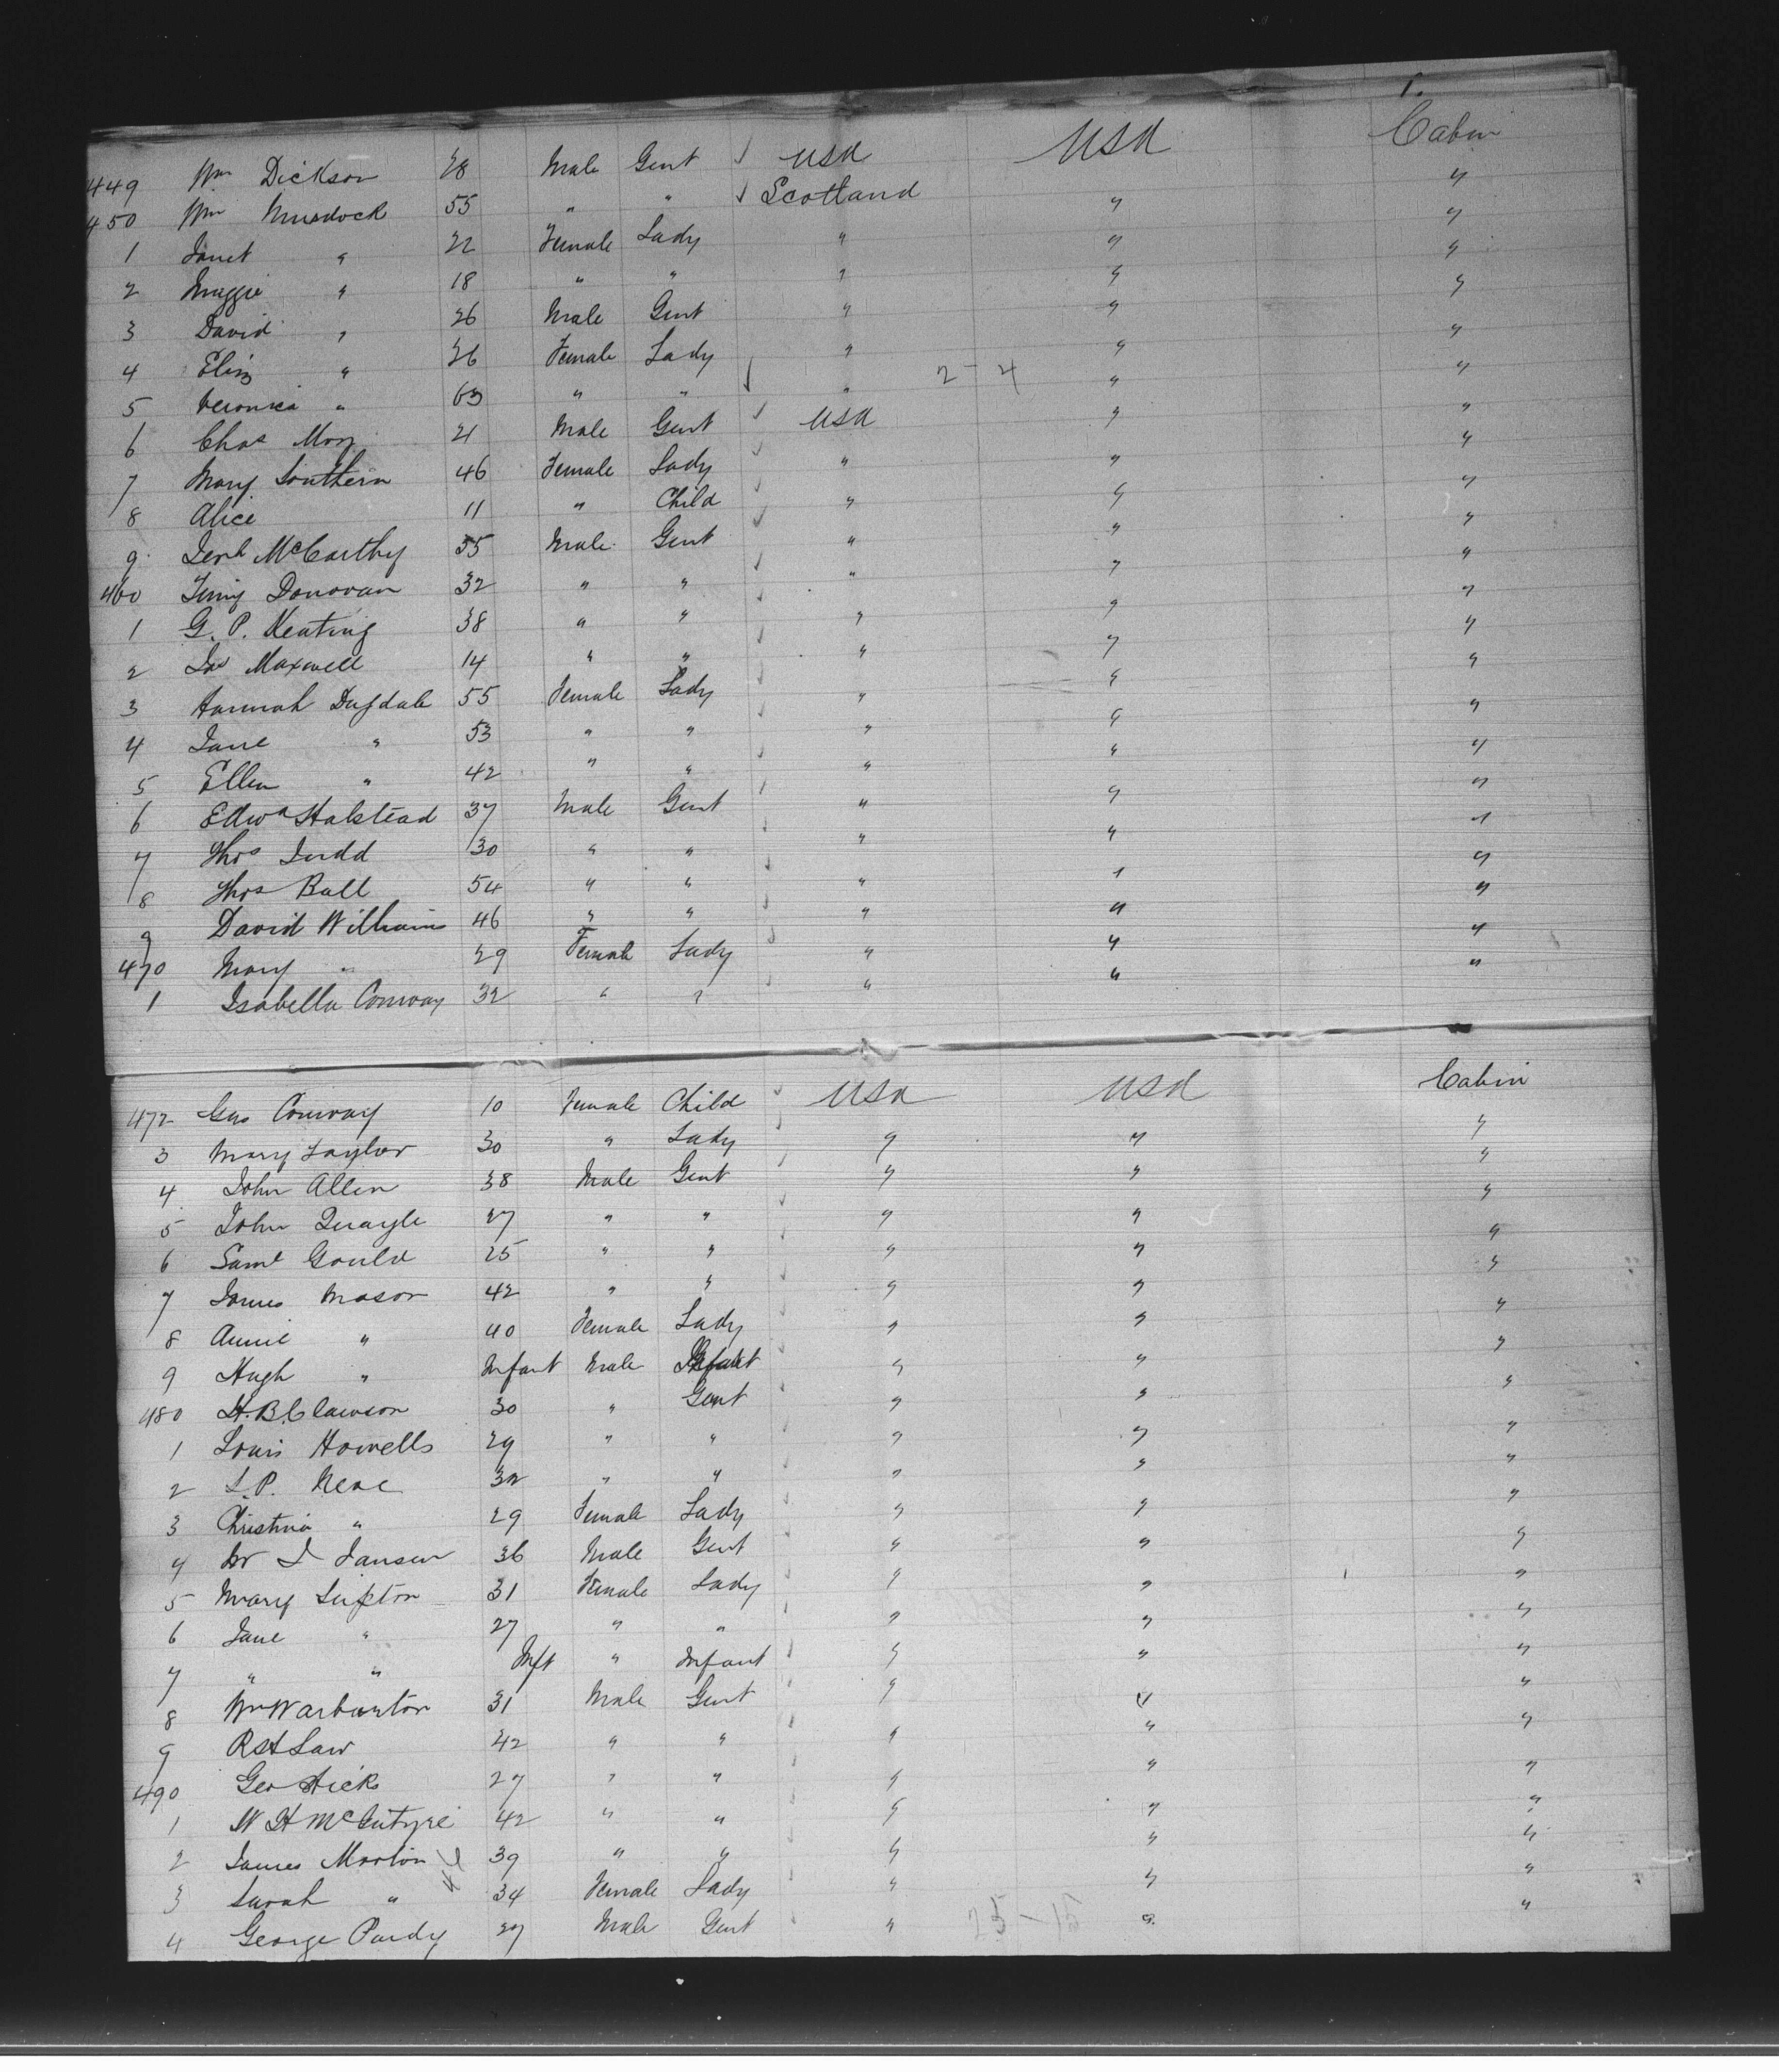 1.
449 Wm Dickson 28 Male Gent ✓ USA USA Cabin
450 Wm Murdock 55 " " ✓ Scotland " "
1 Janet " 22 Female Lady " " "
2 Maggie " 18 " " " " "
3 David " 26 Male Gent " " "
4 Eliz " 26 Female Lady " " "
5 Veronica " 63 " " ✓ " 2-4 " "
6 Chas 21 Male Gent ✓ USA " "
7 Mary Southern 46 Female Lady ✓ " " "
8 Alice 11 " Child ✓ " " "
9 Jerh McCarthy 55 Male Gent ✓ " " "
460 Donovan 32 " " ✓ " " "
1 G. P. Keating 38 " " ✓ " " "
2 Jas Maxwell 14 " " ✓ " " "
3 Hannah Dugdale 55 Female Lady ✓ " " "
4 Jane " 53 " " ✓ " " "
5 Ellen " 42 " " ✓ " " "
6 Edwd Halstead 37 Male Gent ✓ " " "
7 Thos Judd 30 " " ✓ " " "
8 Thos Ball 54 " " ✓ " " "
9 David Williams 46 " " ✓ " " "
470 Mary " 29 Female Lady ✓ " " "
1 Isabella Conway 32 " " ✓ " " "
472 Gus Conway 10 Female Child ✓ USA USA Cabin
3 Mary Taylor 30 " Lady ✓ " " "
4 John Allen 38 Male Gent ✓ " " "
5 John Quayle 27 " " ✓ " " "
6 Saml Gould 25 " " ✓ " " "
7 James Mason 42 " " ✓ " " "
8 Annie " 40 Female Lady ✓ " " "
9 Hugh " Infant Male Infant " " "
480 H. B. Clawson 30 " Gent ✓ " " "
1 Louis Howells 29 " " ✓ " " "
2 L. P. 32 " " ✓ " " "
3 Christina " 29 Female Lady ✓ " " "
4 Dr J Jansen 36 Male Gent ✓ " " "
5 Mary Lupton 31 Female Lady ✓ " " "
6 Jane " 27 " " ✓ " " "
7 " " Inft " Infant ✓ " " "
8 Wm Warburton 31 Male Gent ✓ " " "
9 Law 42 " " ✓ " " "
490 Geo Hicks 27 " " ✓ " " "
1 W H McIntyre 42 " " ✓ " " "
2 James Morton 39 " " ✓ " " "
3 Sarah " 34 Female Lady ✓ " " "
4 George Purdy 27 Male Gent ✓ " 25-15 " "